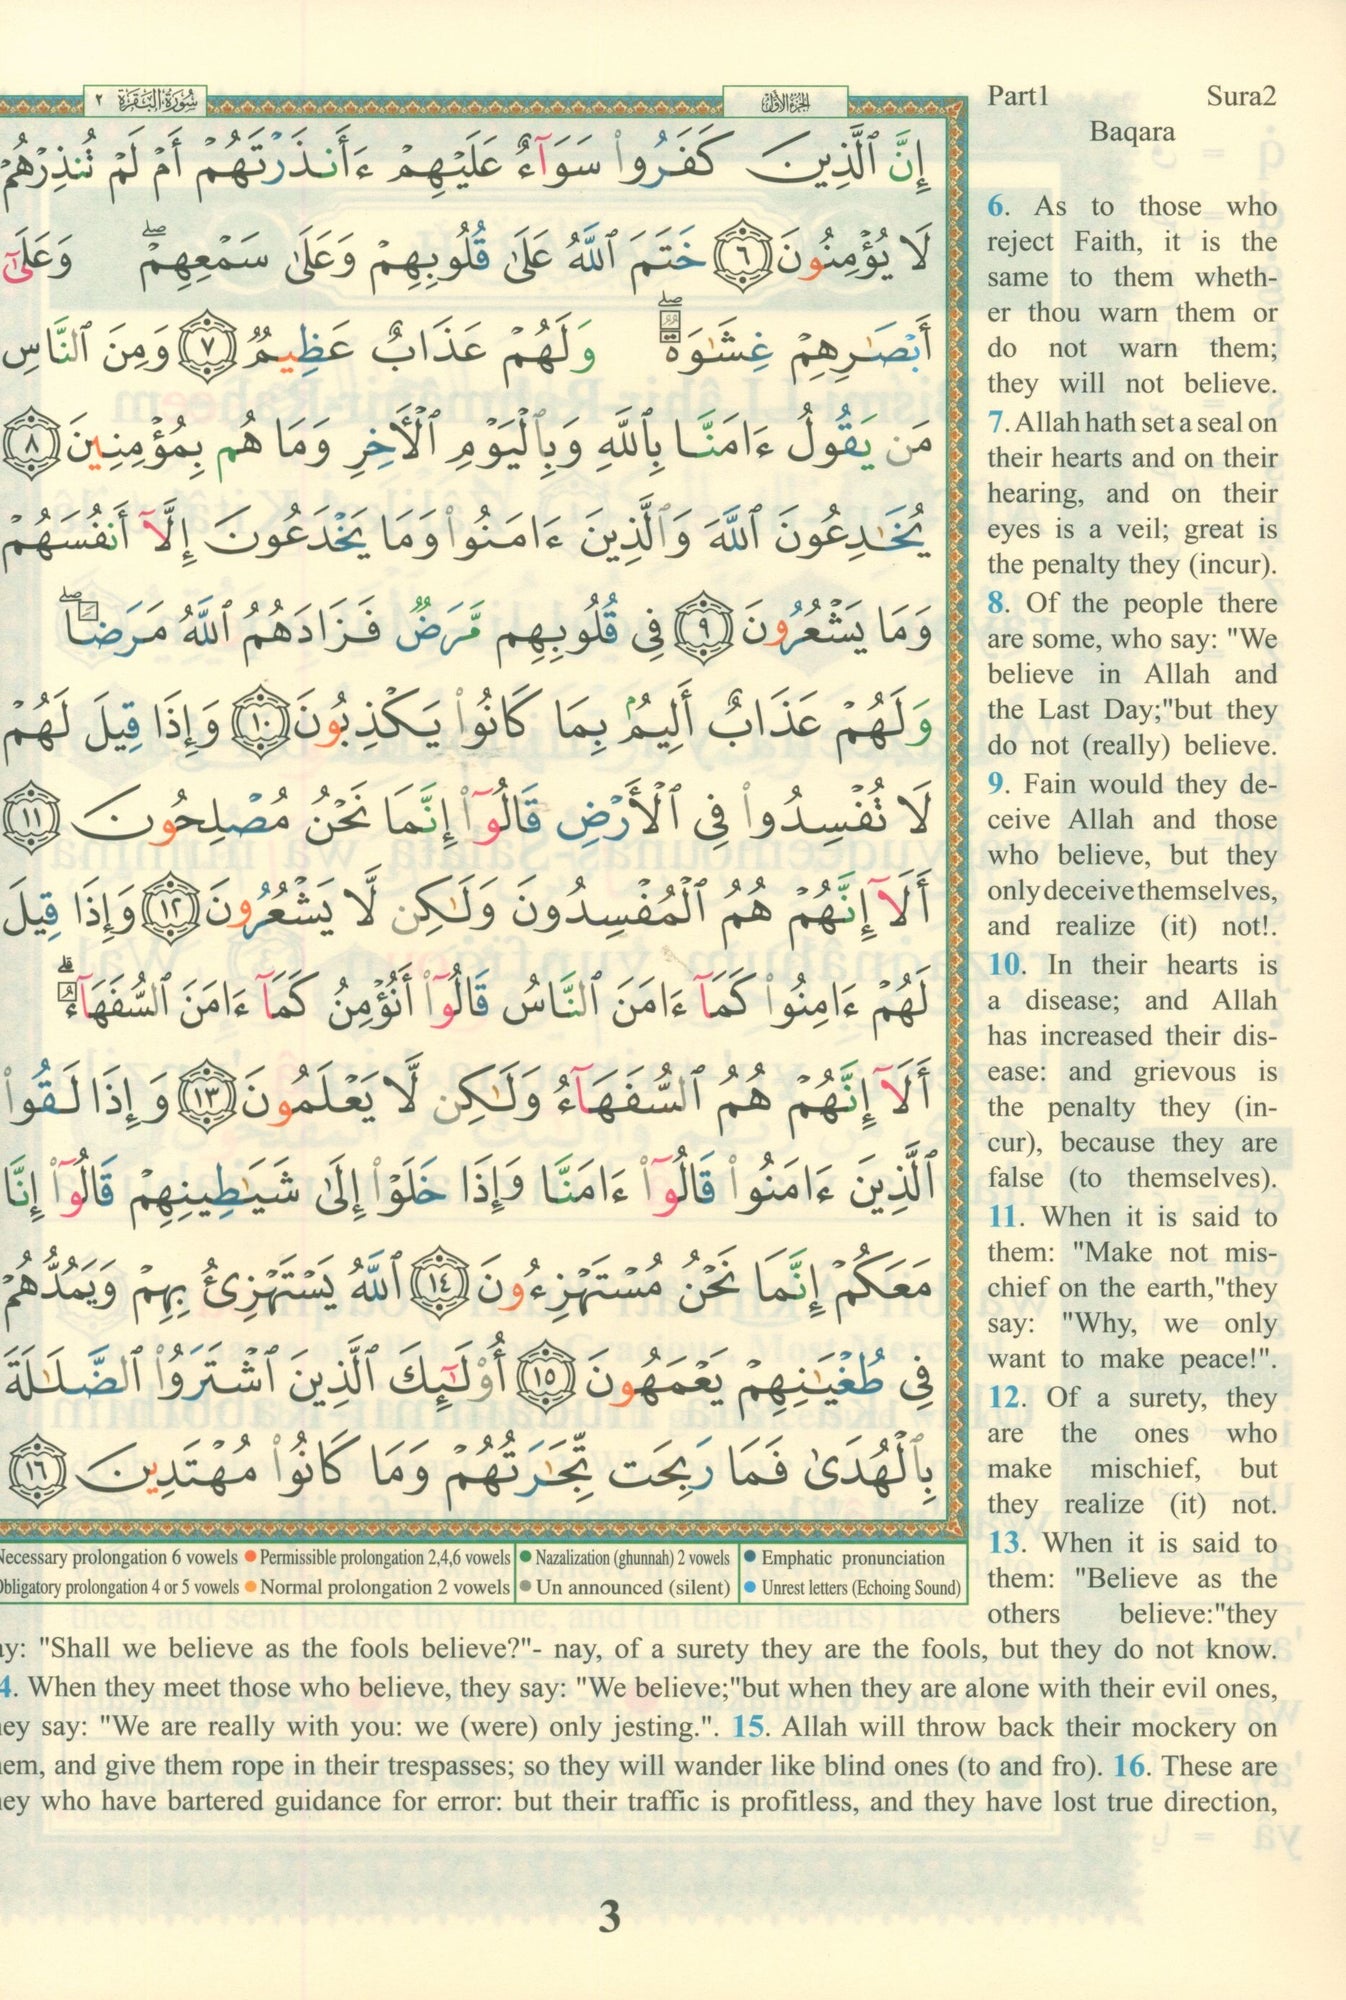 Part1 Sura2
Baqara
سُورَةُ البَقَرَةِ ٢
الجُزءُ الأَوَّلُ
إِنَّ ٱلَّذِينَ كَفَرُوا۟ سَوَآءٌ عَلَيْهِمْ ءَأَنذَرْتَهُمْ أَمْ لَمْ تُنذِرْهُمْ
لَا يُؤْمِنُونَ ٦ خَتَمَ ٱللَّهُ عَلَىٰ قُلُوبِهِمْ وَعَلَىٰ سَمْعِهِمْ ۖ وَعَلَىٰٓ
أَبْصَـٰرِهِمْ غِشَـٰوَةٌ ۖ وَلَهُمْ عَذَابٌ عَظِيمٌ ٧ وَمِنَ ٱلنَّاسِ
مَن يَقُولُ ءَامَنَّا بِٱللَّهِ وَبِٱلْيَوْمِ ٱلْـَٔاخِرِ وَمَا هُم بِمُؤْمِنِينَ ٨
يُخَـٰدِعُونَ ٱللَّهَ وَٱلَّذِينَ ءَامَنُوا۟ وَمَا يَخْدَعُونَ إِلَّآ أَنفُسَهُمْ
وَمَا يَشْعُرُونَ ٩ فِى قُلُوبِهِم مَّرَضٌ فَزَادَهُمُ ٱللَّهُ مَرَضًا ۖ
وَلَهُمْ عَذَابٌ أَلِيمٌۢ بِمَا كَانُوا۟ يَكْذِبُونَ ١٠ وَإِذَا قِيلَ لَهُمْ
لَا تُفْسِدُوا۟ فِى ٱلْأَرْضِ قَالُوٓا۟ إِنَّمَا نَحْنُ مُصْلِحُونَ ١١
أَلَآ إِنَّهُمْ هُمُ ٱلْمُفْسِدُونَ وَلَـٰكِن لَّا يَشْعُرُونَ ١٢ وَإِذَا قِيلَ
لَهُمْ ءَامِنُوا۟ كَمَآ ءَامَنَ ٱلنَّاسُ قَالُوٓا۟ أَنُؤْمِنُ كَمَآ ءَامَنَ ٱلسُّفَهَآءُ ۗ
أَلَآ إِنَّهُمْ هُمُ ٱلسُّفَهَآءُ وَلَـٰكِن لَّا يَعْلَمُونَ ١٣ وَإِذَا لَقُوا۟
ٱلَّذِينَ ءَامَنُوا۟ قَالُوٓا۟ ءَامَنَّا وَإِذَا خَلَوْا۟ إِلَىٰ شَيَـٰطِينِهِمْ قَالُوٓا۟ إِنَّا
مَعَكُمْ إِنَّمَا نَحْنُ مُسْتَهْزِءُونَ ١٤ ٱللَّهُ يَسْتَهْزِئُ بِهِمْ وَيَمُدُّهُمْ
فِى طُغْيَـٰنِهِمْ يَعْمَهُونَ ١٥ أُو۟لَـٰٓئِكَ ٱلَّذِينَ ٱشْتَرَوُا۟ ٱلضَّلَـٰلَةَ
بِٱلْهُدَىٰ فَمَا رَبِحَت تِّجَـٰرَتُهُمْ وَمَا كَانُوا۟ مُهْتَدِينَ ١٦
Necessary prolongation 6 vowels Permissible prolongation 2,4,6 vowels Nazalization (ghunnah) 2 vowels Emphatic pronunciation
Obligatory prolongation 4 or 5 vowels Normal prolongation 2 vowels Un announced (silent) Unrest letters (Echoing Sound)
6. As to those who
reject Faith, it is the
same to them wheth-
er thou warn them or
do not warn them;
they will not believe.
7. Allah hath set a seal on
their hearts and on their
hearing, and on their
eyes is a veil; great is
the penalty they (incur).
8. Of the people there
are some, who say: "We
believe in Allah and
the Last Day;"but they
do not (really) believe.
9. Fain would they de-
ceive Allah and those
who believe, but they
only deceive themselves,
and realize (it) not!.
10. In their hearts is
a disease; and Allah
has increased their dis-
ease: and grievous is
the penalty they (in-
cur), because they are
false (to themselves).
11. When it is said to
them: "Make not mis-
chief on the earth,"they
say: "Why, we only
want to make peace!".
12. Of a surety, they
are the ones who
make mischief, but
they realize (it) not.
13. When it is said to
them: "Believe as the
others believe:"they
ay: "Shall we believe as the fools believe?"- nay, of a surety they are the fools, but they do not know.
4. When they meet those who believe, they say: "We believe;"but when they are alone with their evil ones,
ey say: "We are really with you: we (were) only jesting.". 15. Allah will throw back their mockery on
em, and give them rope in their trespasses; so they will wander like blind ones (to and fro). 16. These are
ey who have bartered guidance for error: but their traffic is profitless, and they have lost true direction,
3